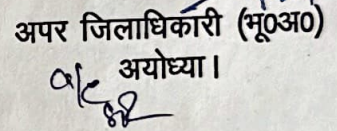 अपर जिलाधिकारी (भू0अ0)
अयोध्या।